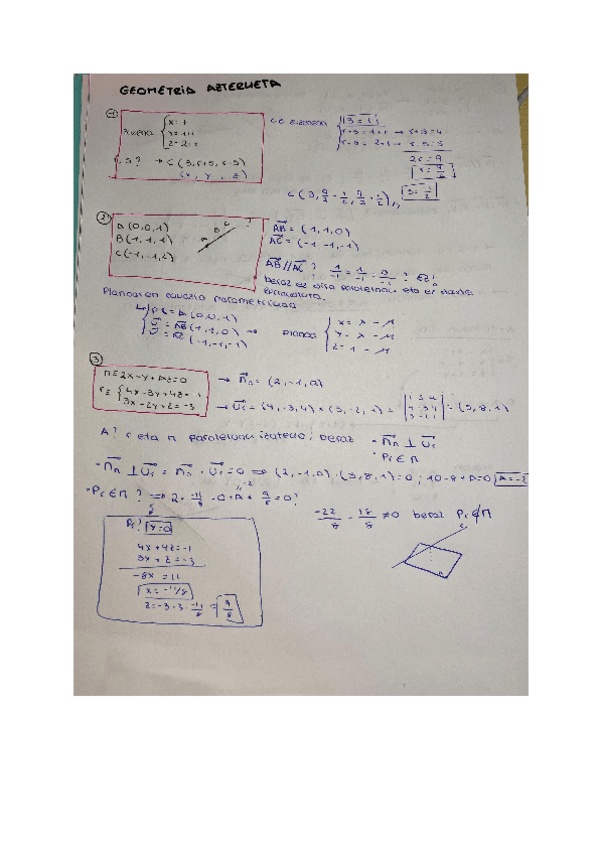 GEOMETRIA AZTERKETA
1
x=1
r,s? → C(3,r+s,r-s)
(x, y, z)
r+s=1+t → r+s=4
r-s=2+t → r-s=5
2r=9
r=9/2
s=-1/2
C(3, 9/2 - 1/2, 9/2 + 1/2)
2
A(0,0,1)
B(1,1,1)
C(-1,-1,2)
AB=(1,1,0)
AC=(-1,-1,-1)
AB//AC? 1/-1=1/-1=0/-1? Ez!
beraz ez dira paraleloak eta ez daude
Planoaren ekuazio parametrikoa
A(0,0,1)
u=AB(1,1,0) ⇒
v=AC(-1,-1,-1)
Planoa
x=λ-μ
y=λ-μ
z=1-μ
3
π≡2x-y+Az=0
r≡ 4x-3y+4z=-1
3x-2y+z=-3
→ nπ=(2,-1,A)
→ Ur=(4,-3,4)×(3,-2,1)= =(5,8,1)
A? r eta π paraleloak izateko, beraz
- nπ ⊥ Ur
Pr∈π
- nπ ⊥ Ur = nπ · Ur=0 ⇒ (2,-1,A)·(5,8,1)=0; 10-8+A=0 A=-2
- Pr∈π? ⇒ 2·-11/8-0+A·9/8=0?
-22/8-18/8≠0 beraz Pr∉π
Pr? y=0
4x+4z=-1
3x+z=-3
-8x=11
x=-11/8
z=-3-3·-11/8=9/8